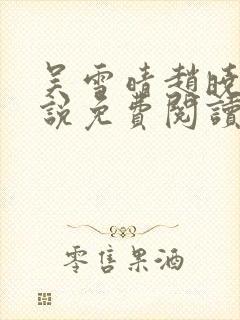 吴雪晴趙曉
說免費閱讀
零售果酒